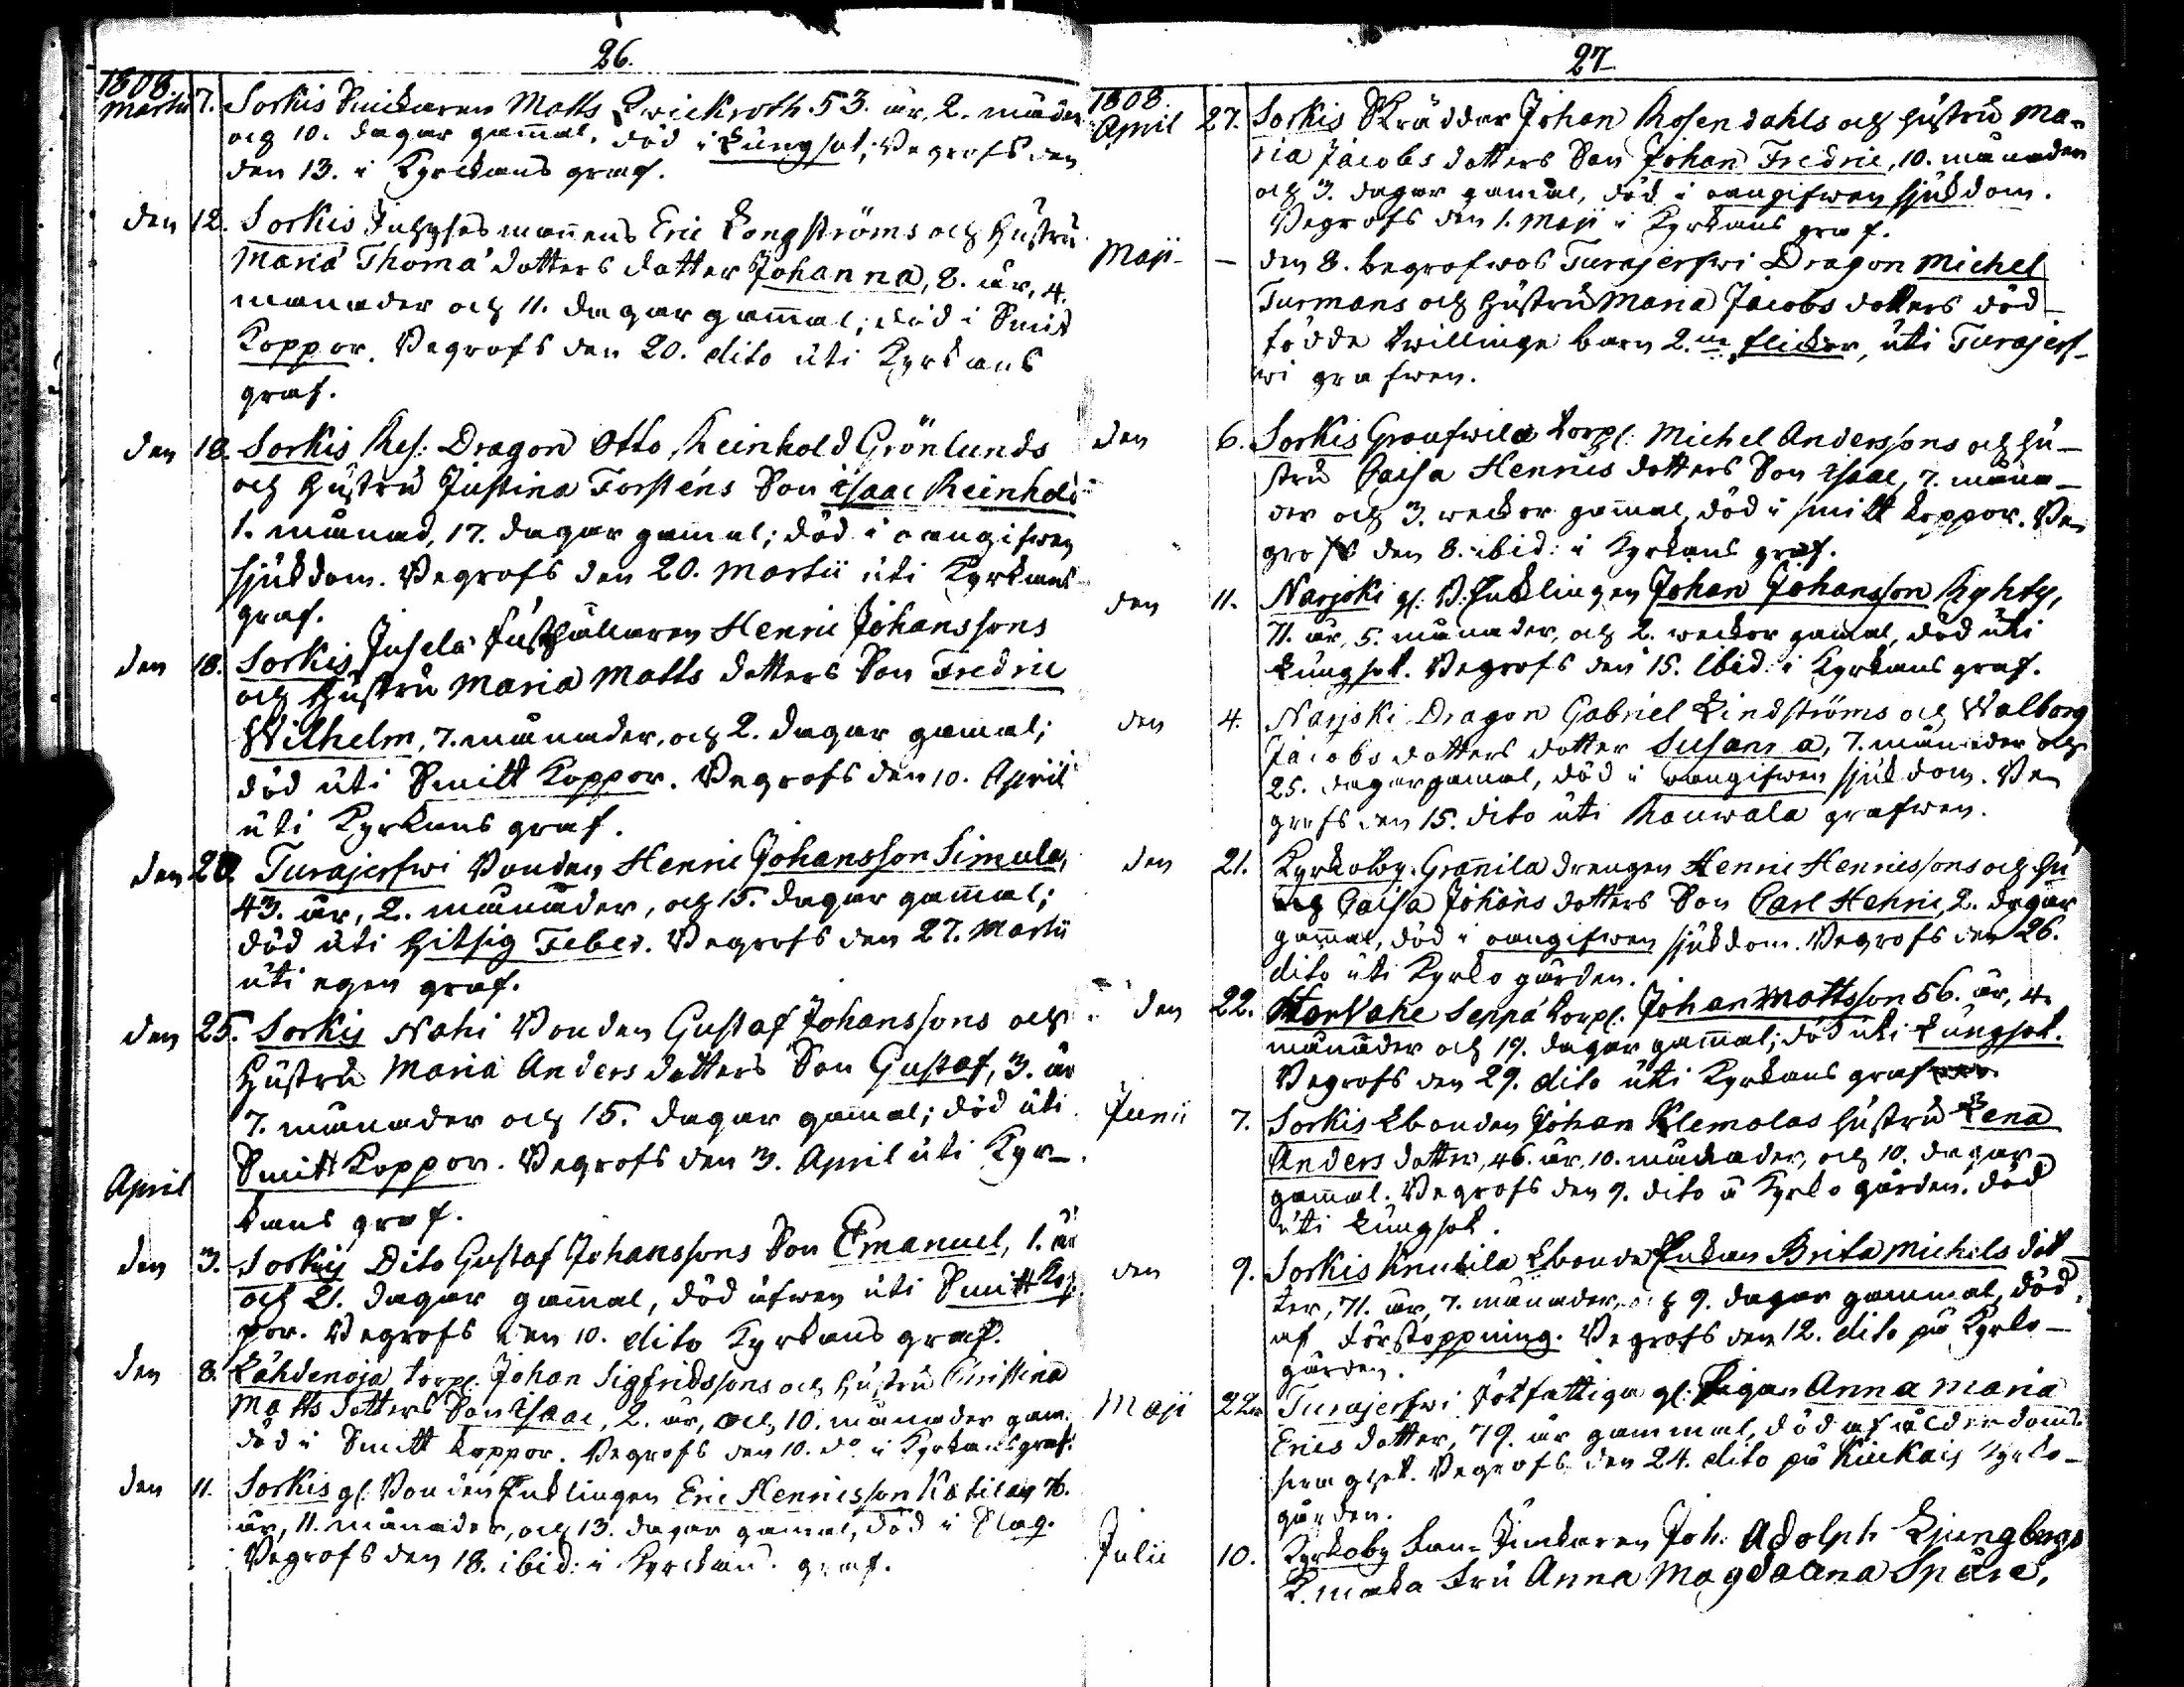 26.
1808.
Martii 7. Sorkis Snickaren Matts Qwickroth 53. år, 2. måder
och 10. dagar gam̄al, död i Lungsot; Begrofs den
den 13. i Kyrckans graf.
den 12. Sorkis Inhyses mannens Eric Longströms och Hustru
Maria Thomæ dotters dotter Johanna, 8. år, 4.
månader och 11. dagar gam̄al; död i Smit
Koppor. Begrofs den 20. dito uti Kyrkans
graf.
den 18. Sorkis Res: Dragon Otto Reinhold Grönlunds
och Hustru Justina Forsténs Son Isaac Reinhold
1. månad, 17. dagar gamal; död i oangifwen
sjukdom. Begrofs den 20. Martii uti Kyrkans
graf.
den 18. Sorkis Jusela Rusthållaren Henric Johanssons
och Hustru Maria Matts dotters Son Fredric
Wilhelm, 7. månader, och 2. dagar gamal;
död uti Smitt Koppor. Begrofs den 10. April
uti Kyrkans graf.
den 20. Turajerfwi Bonden Henric Johansson Simula,
43. år, 2. månader, och 15. dagar gam̄al;
död uti Hitsig Feber. Begrofs den 27. Martii
uti egen graf.
den 25. Sorkis Nahi Bonden Gustaf Johanssons och
Hustru Maria Anders dotters Son Gustaf, 3. år
7. månader och 15. dagar gamal; död uti
Smitt Koppor. Begrofs den 3. April uti Kyr-
April
kans graf.
den 3. Sorkis Dito Gustaf Johanssons Son Emanuel, 1. år
och 21. dagar gam̄al, död äfwen uti Smitt Kop
por. Begrofs den 10. dito Kyrkans graf.
den 8. Lähdenoja torp: Johan Sigfridssons och Hustru Christina
Matts dotters Son Isaac, 2. år, och 10. månader gam.
död i Smitt koppor. Begrofs den 10. do i Kyrkans graf.
den 11. Sorkis gl. Bonden Enklingen Eric Henricsson Katilas 76.
år, 11. månader, och 13. dagar gamal, död i Slag.
Begrofs den 18. ibid: i Kyrckans graf.
27
1808.
April 27. Sorkis Skrädder Johan Rosendahls och Hustru Ma-
ria Jacobs dotters Son Johan Fredric, 10. månader
och 3. dagar gamal, död i oangifwen sjukdom.
Begrofs den 1. Maji i Kyrkans graf.
Maji - - den 8. begrofwos Turajerfwi Dragon Michel
Turmans och Hustru Maria Jacobs dotters död-
födde twillinge barn 2.ne flickor, uti Turajerf-
wi grafwen.
den 6. Sorkis Graufwila torp: Michel Anderssons och Hu-
stru Caisa Henrics dotters Son Isaac, 7. måna-
der och 3. weckor gam̄al, död i smitt koppor. Be-
grofs den 8. ibid: i Kyrkans graf.
den 11. Narjoki gl. B. Enklingen Johan Johansson Ryhty,
71. år, 5. månader, och 2. weckor gamal, död uti
Lungsot. Begrofs den 15. ibid: i Kyrkans graf.
den 4. Narjoki Dragon Gabriel Lindströms och Walborg
Jacobs dotters dotter Susanna, 7. månader och
25. dagar gamal, död i oangifwen sjukdom. Be
grofs den 15. dito uti Rauwala grafwen.
den 21. Kyrkoby Gran̄ila drengen Henric Henricssons och Hu
Caisa Johans dotters Son Carl Henric, 2. dagar
gam̄al, död i oangifwen sjukdom. Begrofs den 26.
dito uti Kyrko gården.
den 22. Seppä torp: Johan Mattsson 56. år, 4.
månader och 19. dagar gam̄al; död uti Lungsot.
Begrofs den 29. dito uti Kyrkans graf
Junii 7. Sorkis Ebonden Johan Klemolas Hustru Lena
Anders dotter, 46. år, 10. månader, och 10. dagar
gam̄al. Begrofs den 9. dito å Kyrko gården. död
uti Lungsot.
den 9. Sorkis Knutila Ebonde Enkan Brita Michels dot
ter, 71. år, 7. månader, och 9. dagar gammal, död
af förstoppning. Begrofs den 12. dito på Kyrko-
gården.
Maji 22. Turajerfwi Fattiga gl. Pigan Anna Maria
Erics dotter, 79. år gammal, död af ålderdoms
swaghet. Begrofs den 24. dito på Kiukais Kyrko-
gården.
Julii 10. Kyrkoby Joh: Adolph Ljungbergs
K. maka fru Anna Magdalena Spåre,